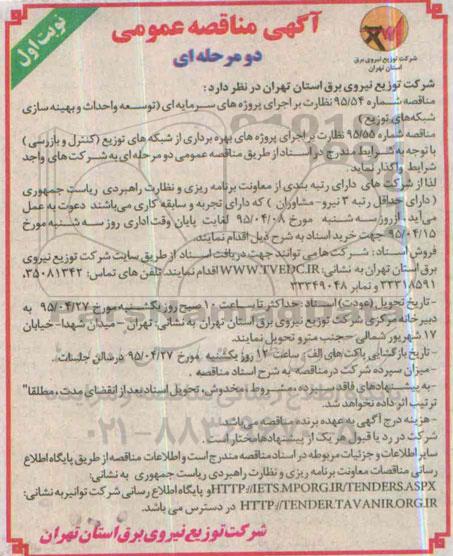 آگهی مناقصه عمومی
دو مرحله ای
نوبت اول
شرکت توزیع نیروی برق
استان تهران
شرکت توزیع نیروی برق استان تهران در نظر دارد:
مناقصه شماره ۹۵/۵۴ نظارت بر اجرای پروژه های سرمایه ای (توسعه واحداث و بهینه سازی
شبکه‌های توزیع)
مناقصه شماره ۹۵/۵۵ نظارت بر اجرای پروژه های بهره برداری از شبکه های توزیع (کنترل و بازرسی)
با توجه به شرایط مندرج در اسناد از طریق مناقصه عمومی دو مرحله ای به شرکت های واجد
شرایط واگذار نماید.
لذا از شرکت های دارای رتبه بندی از معاونت برنامه ریزی و نظارت راهبردی ریاست جمهوری
(دارای حداقل رتبه ۳ نیرو-مشاوران) که دارای تجربه و سابقه کاری می‌باشند دعوت به عمل
می آید، از روز سه شنبه مورخ ۹۵/۰۴/۰۸ لغایت پایان وقت اداری روز سه شنبه مورخ
۹۵/۰۴/۱۵ جهت خرید اسناد به شرح ذیل اقدام نمایند.
فروش اسناد: شرکت‌ها می توانند جهت دریافت اسناد از طریق سایت شرکت توزیع نیروی
برق استان تهران به نشانی: WWW.TVEDC.IR اقدام نمایند. تلفن های تماس: ۳۵۰۸۱۳۴۲،
۳۳۳۱۸۵۹۱ و نمابر ۳۳۳۴۹۰۴۸
-تاریخ تحویل (عودت) اسناد: حداکثر تا ساعت ۱۰ صبح روز یکشنبه مورخ ۹۵/۰۴/۲۷ به
دبیرخانه مرکزی شرکت توزیع نیروی برق استان تهران به نشانی: تهران - میدان شهدا- خیابان
۱۷ شهریور شمالی -جنب مترو تحویل نمایند.
-تاریخ بازگشایی پاکت های الف: ساعت ۱۲ روز یکشنبه مورخ ۹۵/۰۴/۲۷ در سالن جلسات.
-میزان سپرده شرکت در مناقصه به شرح اسناد مناقصه.
-به پیشنهادهای فاقد سپرده، مشروط، مخدوش، تحویل اسناد بعد از انقضای مدت، مطلقا"
ترتیب اثر داده نخواهد شد.
-هزینه درج آگهی به عهده برنده مناقصه می‌باشد.
شرکت در رد یا قبول هر یک از پیشنهادها مختار است.
سایر اطلاعات و جزئیات مربوطه در اسناد مناقصه مندرج است و اطلاعات مناقصه از طریق پایگاه اطلاع
رسانی مناقصات معاونت برنامه ریزی و نظارت راهبردی ریاست جمهوری به نشانی:
HTTP://IETS.MPORG.IR/TENDERS.ASPX و پایگاه اطلاع رسانی شرکت توانیر به نشانی:
HTTP://TENDER.TAVANIR.ORG.IR در دسترس می باشد.
شرکت توزیع نیروی برق استان تهران